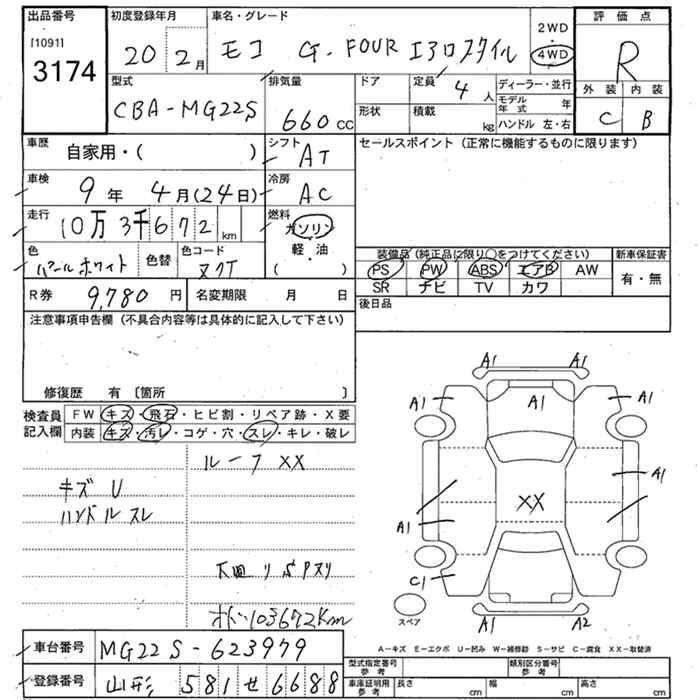 出品番号 初度登録年月 車名・グレード 2WD ・ 4WD 評価点
[1091]
3174 20 2月 モコ G-FOUR エアロスタイル R
型式 排気量 ドア 定員 4 人 ディーラー・並行 外装 内装
モデル年式 年
CBA-MG22S 660 CC 形状 積載 kg ハンドル 左・右 C B
車歴 自家用・( ) シフト AT セールスポイント (正常に機能するものに限ります)
車検 9年 4月(24日) 冷房 AC
走行 10万3千672 km 燃料 ガソリン
軽油
( )
色 パールホワイト 色替 色コード
装備品(純正品に限り○をつけてください) 新車保証書
PS PW ABS エアB AW 有・無
SR ナビ TV カワ
R券 9,780 円 名変期限 月 日 後日品
注意事項申告欄 (不具合内容等は具体的に記入して下さい)
修復歴 有 〔箇所 〕
検査員記入欄 FW キズ・飛石・ヒビ割・リペア跡・X要
内装 キズ・汚レ・コゲ・穴・スレ・キレ・破レ
ルーフ XX
キズ U
ハンドルスレ
オド103672Km
A1 A1
A1 A1 A1
A1
XX
A1
C1
スペア A1 A2
A-キズ E-エクボ U-凹み W-補修跡 S-サビ C-腐食 XX-取替済
車台番号 MG22S-623979
登録番号 山形 581 せ 6688
型式指定番号 参考 類別区分番号 参考
車庫証明用 参考 長さ cm 幅 cm 高さ cm